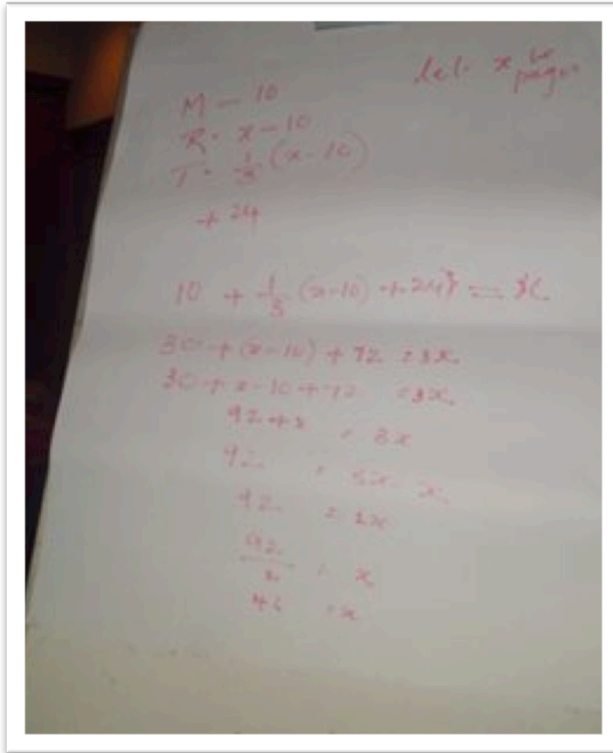 let x be pages
M - 10
R - x - 10
T - 1/3 (x-10)
+ 24
10 + 1/3 (x-10) + 24} = x
30 + (x-10) + 72 = 3x
30 + x - 10 + 72 = 3x
92 + x = 3x
92 = 3x - x
92 = 2x
92/2 = x
46 = x